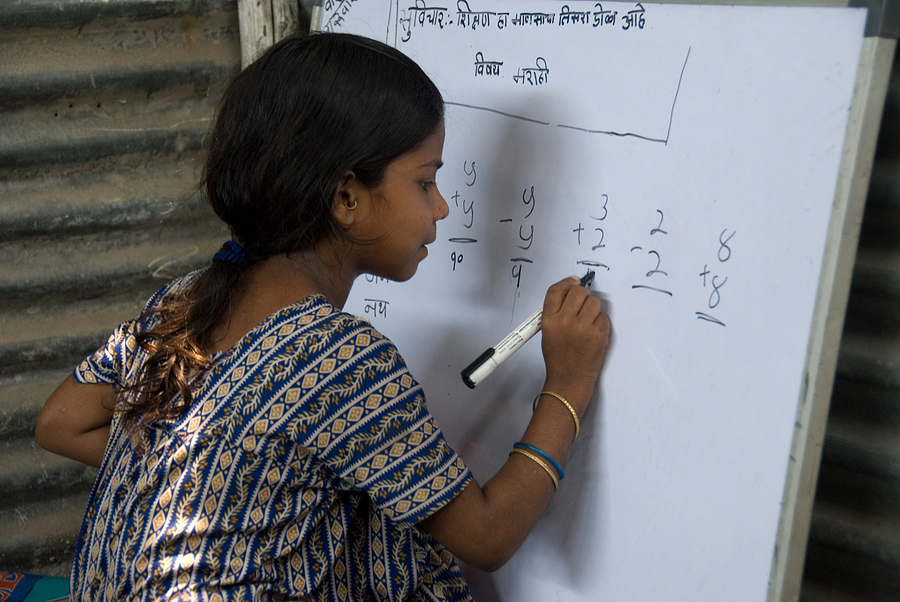 सुविचार:- शिक्षण हा माणसाचा तिसरा डोळा आहे
विषय मराठी
५
+ ५
१०
५
- ५
१
३
+ २
२
- २
४
+ ४
नथ